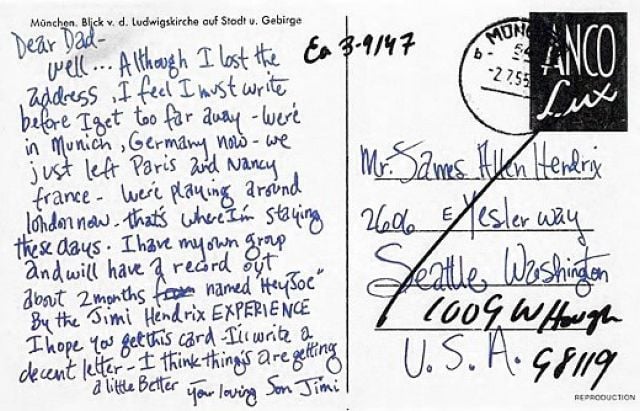 München. Blick v. d. Ludwigskirche auf Stadt u. Gebirge
Dear Dad-
well... Although I lost the
address, I feel I must write
before I get too far away - We're
in Munich, Germany now - we
just left Paris and Nancy
france - We're playing around
london now. thats where I'm staying
these days. I have my own group
and will have a record out
about 2 months named "Hey Joe"
By the Jimi Hendrix EXPERIENCE
I hope you get this card - I'll write a
decent letter - I think things are getting
a little Better
your loving Son Jimi
Ea 3-9/47
MÜN
ANCO
Lux
Mr. James Allen Hendrix
2606 E Yesler way
Seattle Washington
U.S.A.
98119
REPRODUCTION